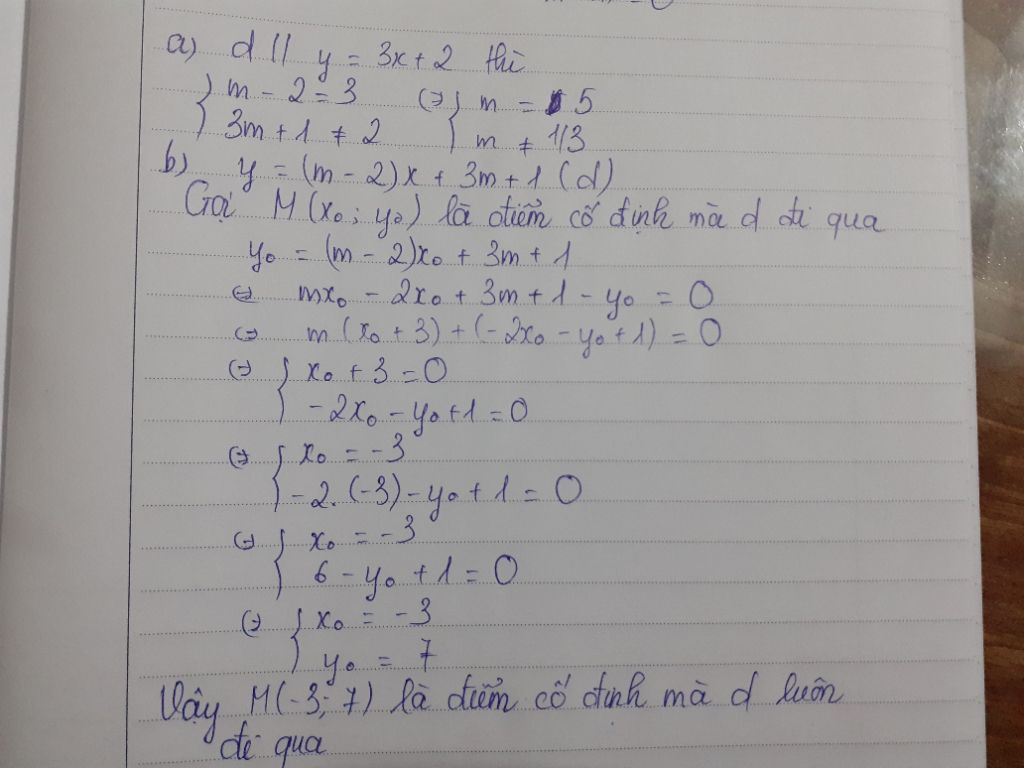 a) d // y = 3x + 2 thì
{ m - 2 = 3 (=) { m = 5
{ 3m + 1 ≠ 2 { m ≠ 1/3
b) y = (m - 2)x + 3m + 1 (d)
Gọi M(x₀; y₀) là điểm cố định mà d đi qua
y₀ = (m - 2)x₀ + 3m + 1
(=) mx₀ - 2x₀ + 3m + 1 - y₀ = 0
(=) m(x₀ + 3) + (-2x₀ - y₀ + 1) = 0
(=) { x₀ + 3 = 0
{ -2x₀ - y₀ + 1 = 0
(=) { x₀ = -3
{ -2.(-3) - y₀ + 1 = 0
(=) { x₀ = -3
{ 6 - y₀ + 1 = 0
(=) { x₀ = -3
{ y₀ = 7
Vậy M(-3; 7) là điểm cố định mà d luôn
đi qua